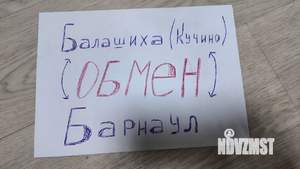 Балашиха (Кучино)
ОБМЕН
Барнаул
NDVZMST